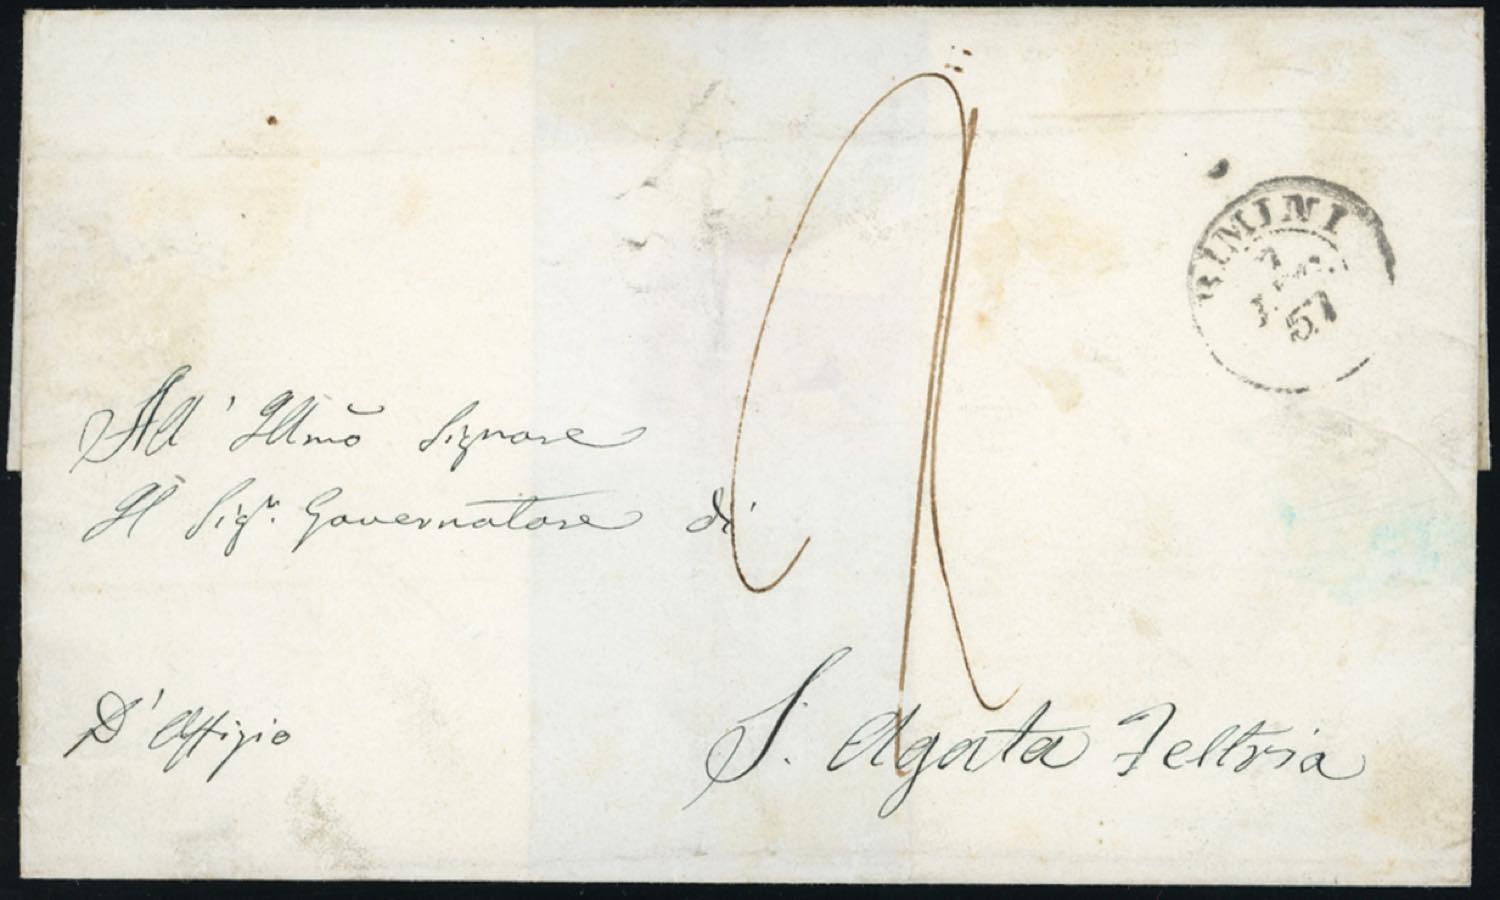 RIMINI
57
All' Illmo Signore
Il Sigr. Governatore di
D' Offizio
S. Agata Feltria